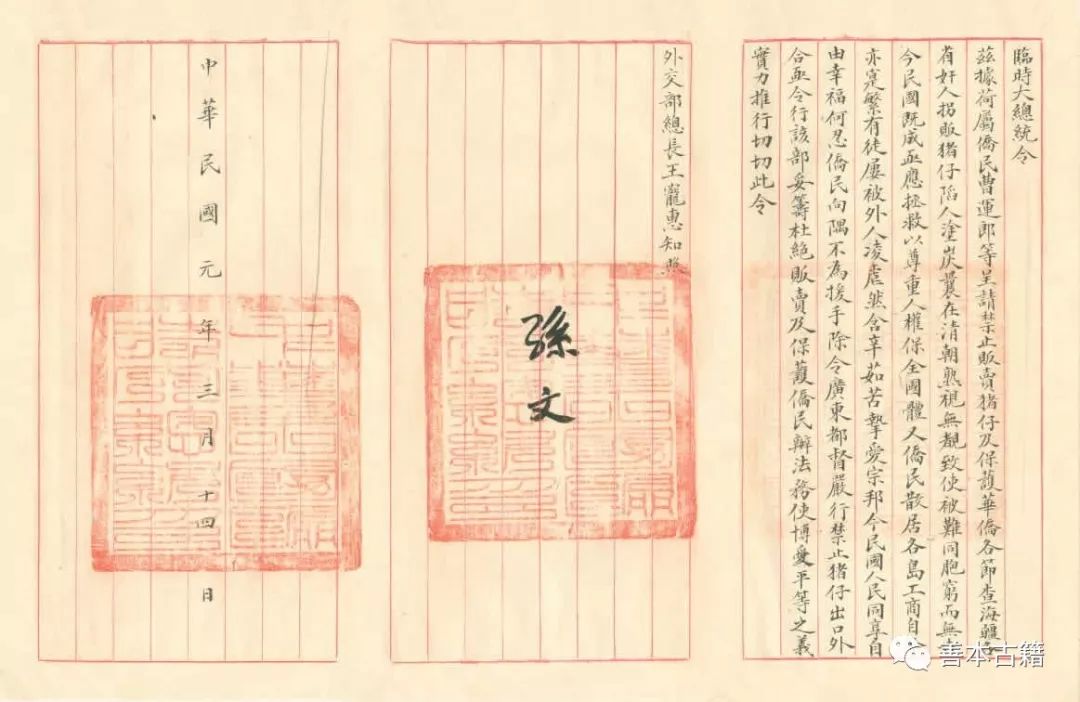 臨時大總統令
茲據荷屬僑民曹運郎等呈請禁止販賣猪仔及保護華僑各節查海疆各
有奸人拐販猪仔陷人塗炭曩在清朝熟視無覩致使被難同胞窮而無
今民國既成亟應拯救以尊重人權保全國體又僑民散居各島工商自
亦寔繁有徒屢被外人凌虐然含辛茹苦摯愛宗邦今民國人民同享自
由幸福何忍僑民向隅不為援手除令廣東都督嚴行禁止猪仔出口外
合亟令行該部妥籌杜絕販賣及保護僑民辦法務使博愛平等之義
實力推行切切此令
外交部總長王寵惠知照
孫文
中華民國元年三月十四日
善本古籍